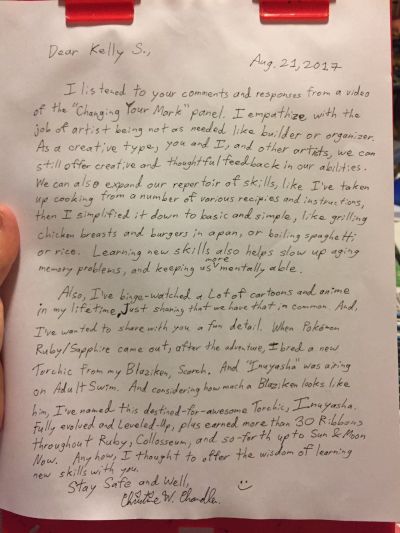 Dear Kelly S.,
Aug. 21, 2017
I listened to your comments and responses from a video
of the "Changing Your Mark" panel. I empathize with the
job of artist being not as needed like builder or organizer.
As a creative type, you and I, and other artists, we can
still offer creative and thoughtful feedback in our abilities.
We can also expand our repertoir of skills, like I've taken
up cooking from a number of various recipies and instructions,
then I simplified it down to basic and simple, like grilling
chicken breasts and burgers in a pan, or boiling spaghetti
or rice. Learning new skills also helps slow up aging
memory problems, and keeping us more mentally able.
Also, I've binge-watched a Lot of cartoons and anime
in my lifetime, Just sharing that we have that in common. And,
I've wanted to share with you a fun detail. When Pokémon
Ruby/Sapphire came out, after the adventure, I bred a new
Torchic from my Blaziken, Scorch. And "Inuyasha" was airing
on Adult Swim. And considering how much a Blaziken looks like
him, I've named this destined-for-awesome Torchic, Inuyasha.
Fully evolved and Leveled-Up, plus earned more than 30 Ribbons
throughout Ruby, Collosseum, and so-forth up to Sun & Moon
Now. Any how, I thought to offer the wisdom of learning
new skills with you.
Stay Safe and Well,
Christine W. Chandler.